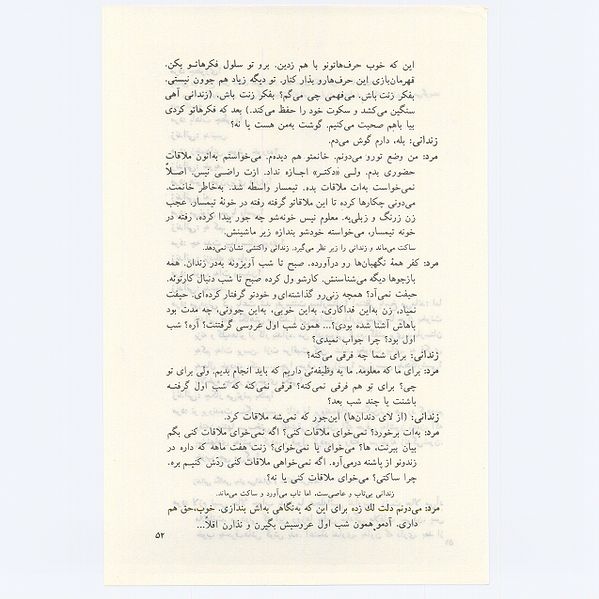 این که خوب حرف‌هاتونو با هم زدین. برو تو سلول فکرهاتـو بکن.
قهرمان‌بازی این حرف‌هارو بذار کنار. تو دیگه زیاد هم جوون نیستی.
بفکر زنت باش. می‌فهمی چی می‌گم؟ بفکر زنت باش. (زندانی آهی
سنگین می‌کشد و سکوت خود را حفظ می‌کند.) بعد که فکرهاتو کردی
بیا باهم صحبت می‌کنیم. گوشت به‌من هست یا نه؟
زندانی: بله، دارم گوش می‌دم.
مرد: من وضع تورو می‌دونم. خانمتو هم دیده‌م. می‌خواستم به‌اتون ملاقات
حضوری بدم. ولـی «دکتـر» اجـازه نداد. ازت راضـی نیس. اصـلاً
نمی‌خواست به‌ات ملاقات بده. تیمسار واسطه شد. به‌خاطر خانمت.
می‌دونی چکارها کرده تا این ملاقاتو گرفته رفته در خونهٔ تیمسار. عجب
زن زرنگ و زبلی‌یه. معلوم نیس خونه‌شو چه جور پیدا کرده. رفته در
خونه تیمسار، می‌خواسته خودشو بندازه زیر ماشینش.
ساکت می‌ماند و زندانی را زیر نظر می‌گیرد. زندانی واکنشی نشان نمی‌دهد.
مرد: کفر همهٔ نگهبان‌ها رو درآورده. صبح تا شب آویزونه به‌در زندان. همه
بازجوها دیگه می‌شناسنش. کارشو ول کرده صبح تا شب دنبال کارتوئه.
حیفت نمی‌آد؟ همچه زنی‌رو گذاشته‌ای و خودتو گرفتار کرده‌ای. حیفت
نمیاد، زن به‌این فداکاری، به‌این خوبی، به‌این جوونی، چه مدت بود
باهاش آشنا شده بودی؟... همون شب اول عروسی گرفتنت؟ آره؟ شب
اول بود؟ چرا جواب نمیدی؟
زندانی: برای شما چه فرقی می‌کنه؟
مرد: برای ما که معلومه. ما یه وظیفه‌ئی داریم که باید انجام بدیم. ولی برای تو
چی؟ برای تو هم فرقی نمی‌کنه؟ فرقی نمی‌کنه که شب اول گرفتـه
باشنت یا چند شب بعد؟
زندانی: (از لای دندان‌ها) این‌جور که نمی‌شه ملاقات کرد.
مرد: به‌ات برخورد؟ نمی‌خوای ملاقات کنی؟ اگه نمی‌خوای ملاقات کنی بگم
بیان ببرنت، ها؟ می‌خوای یا نمی‌خوای؟ زنت هفت ماهه که داره در
زندونو از پاشنه درمی‌آره. اگه نمی‌خواهی ملاقات کنی ردّش کنیـم بره.
چرا ساکتی؟ می‌خوای ملاقات کنی یا نه؟
زندانی بی‌تاب و عاصی‌ست، اما تاب می‌آورد و ساکت می‌ماند.
مرد: می‌دونم دلت لك زده برای این که یه‌نگاهی به‌اش بندازی. خوب،حق هم
داری. آدمو همون شب اول عروسیش بگیرن و نذارن اقلاً...
۵۲